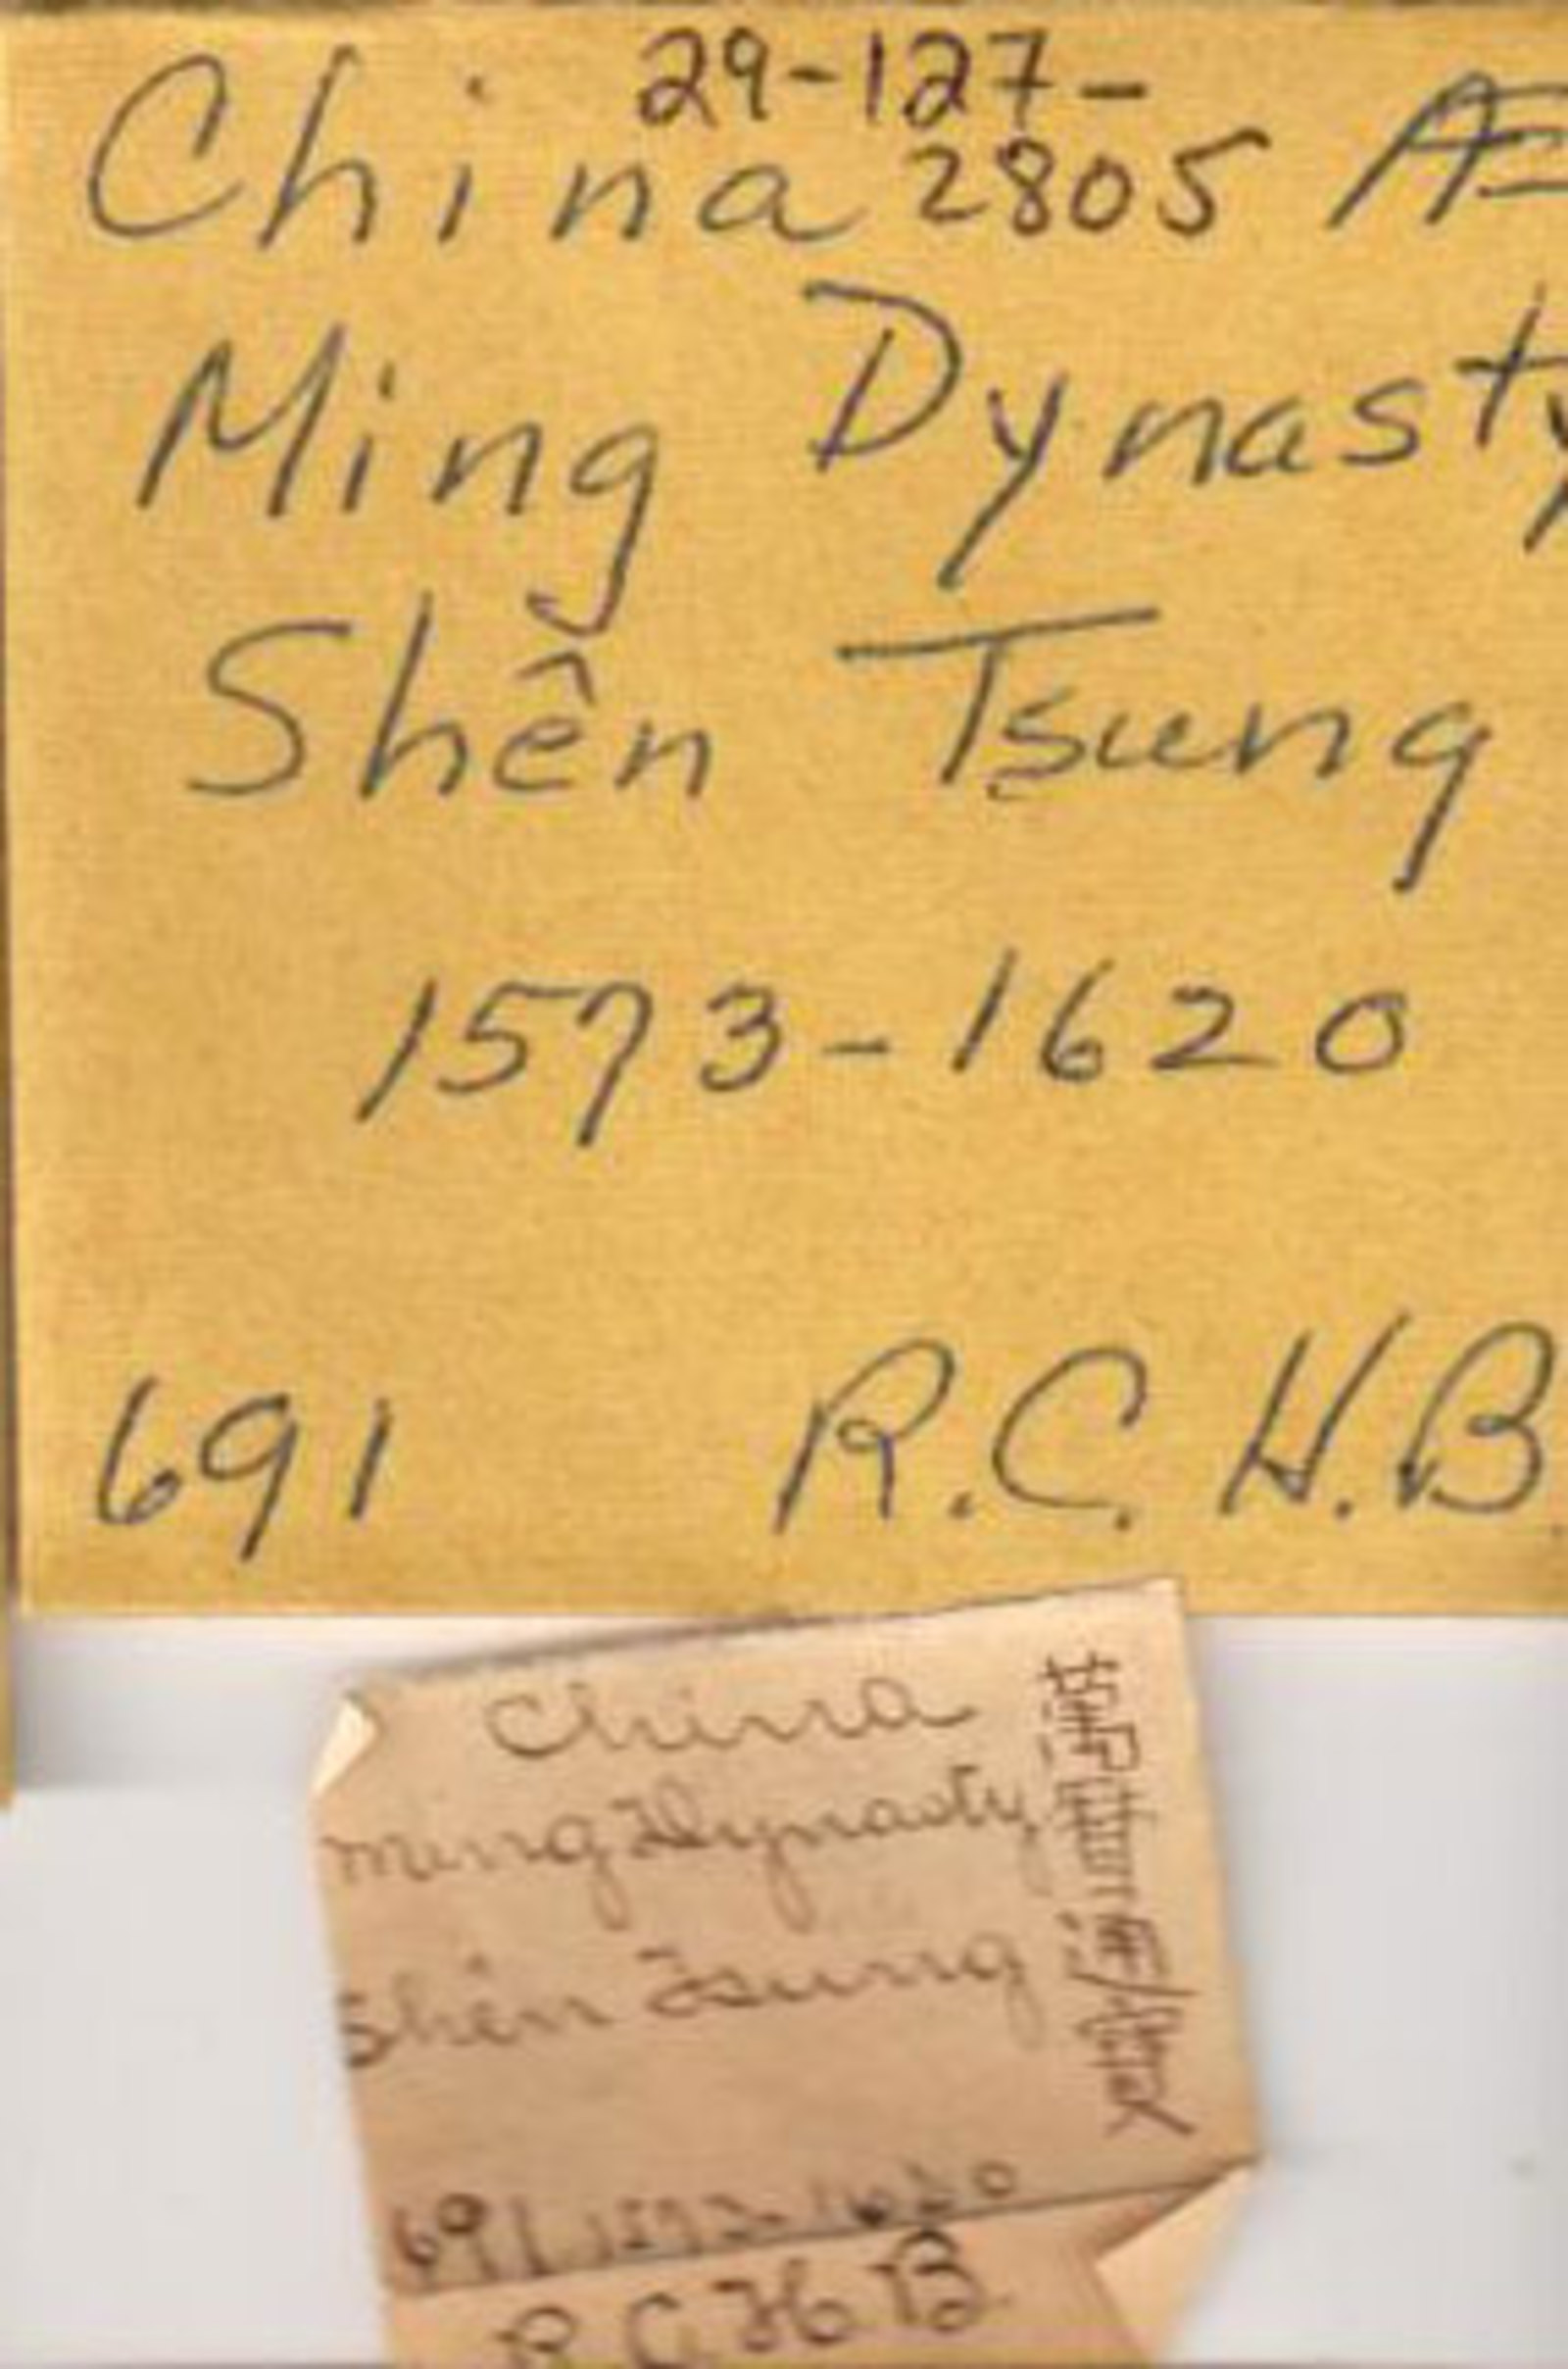 29-127-
China 2805 Æ
Ming Dynasty
Shên Tsung
1573-1620
691 R.C.H.B.
China
Ming Dynasty
Shên Tsung
691 1573-1620
R C H B
萬曆通寳